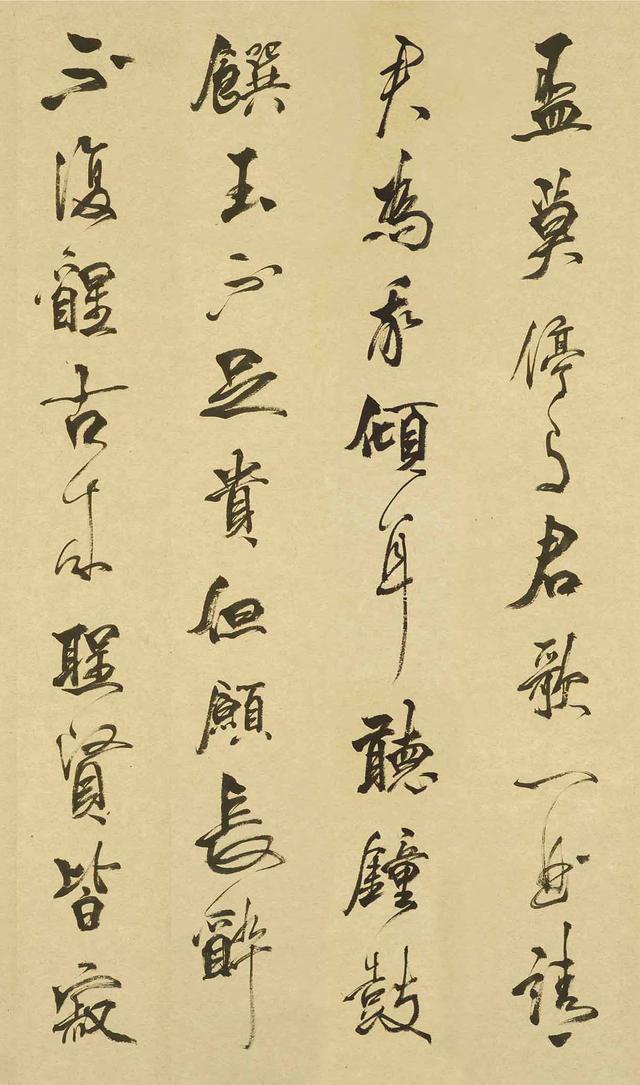 盃莫停与君歌一曲請
君為我傾耳聽鐘鼓
饌玉不足貴但願長醉
不復醒古来聖賢皆寂